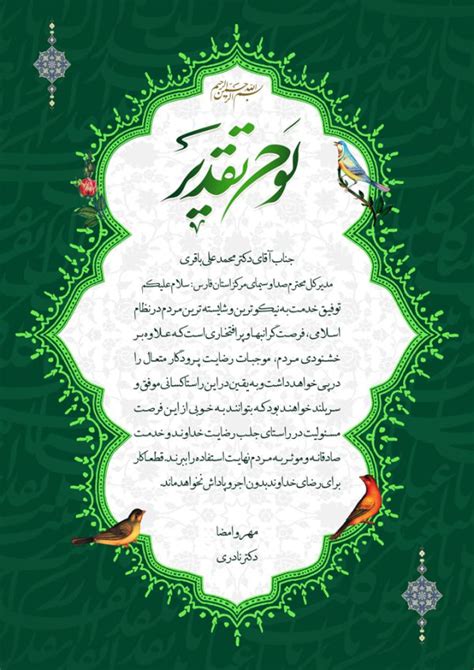 بسم الله الرحمن الرحیم
لوح تقدیر
جناب آقای دکتر محمد علی باقری
مدیر کل محترم صدا و سیمای مرکز استان فارس: سلام علیکم
توفیق خدمت به نیکوترین و شایسته ترین مردم در نظام
اسلامی، فرصت گرانبها و پر افتخاری است که علاوه بر
خشنودی مردم، موجبات رضایت پرودگار متعال را
در پی خواهد داشت و به یقین در این راستا کسانی موفق و
سربلند خواهند بود که بتوانند به خوبی از این فرصت
مسئولیت در راستای جلب رضایت خداوند و خدمت
صادقانه و موثر به مردم نهایت استفاده را ببرند. قطعا کار
برای رضای خداوند بدون اجر و پاداش نخواهد ماند.
مهر و امضا
دکتر نادری